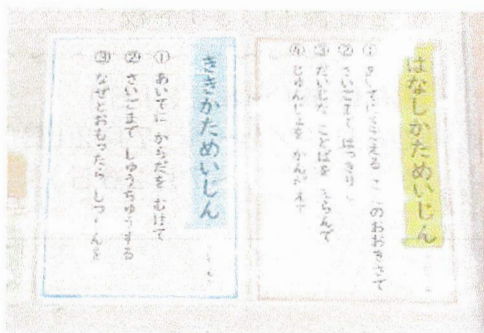 はなしかためいじん
① きこえる このおおきさで
② さいごまで はっきり
③ だいじな ことばを えらんで
④ じゅんじょを かんがえて
ききかためいじん
① あいてに からだを むけて
② さいごまで しゅうちゅうする
③ なぜとおもったら しつもんを